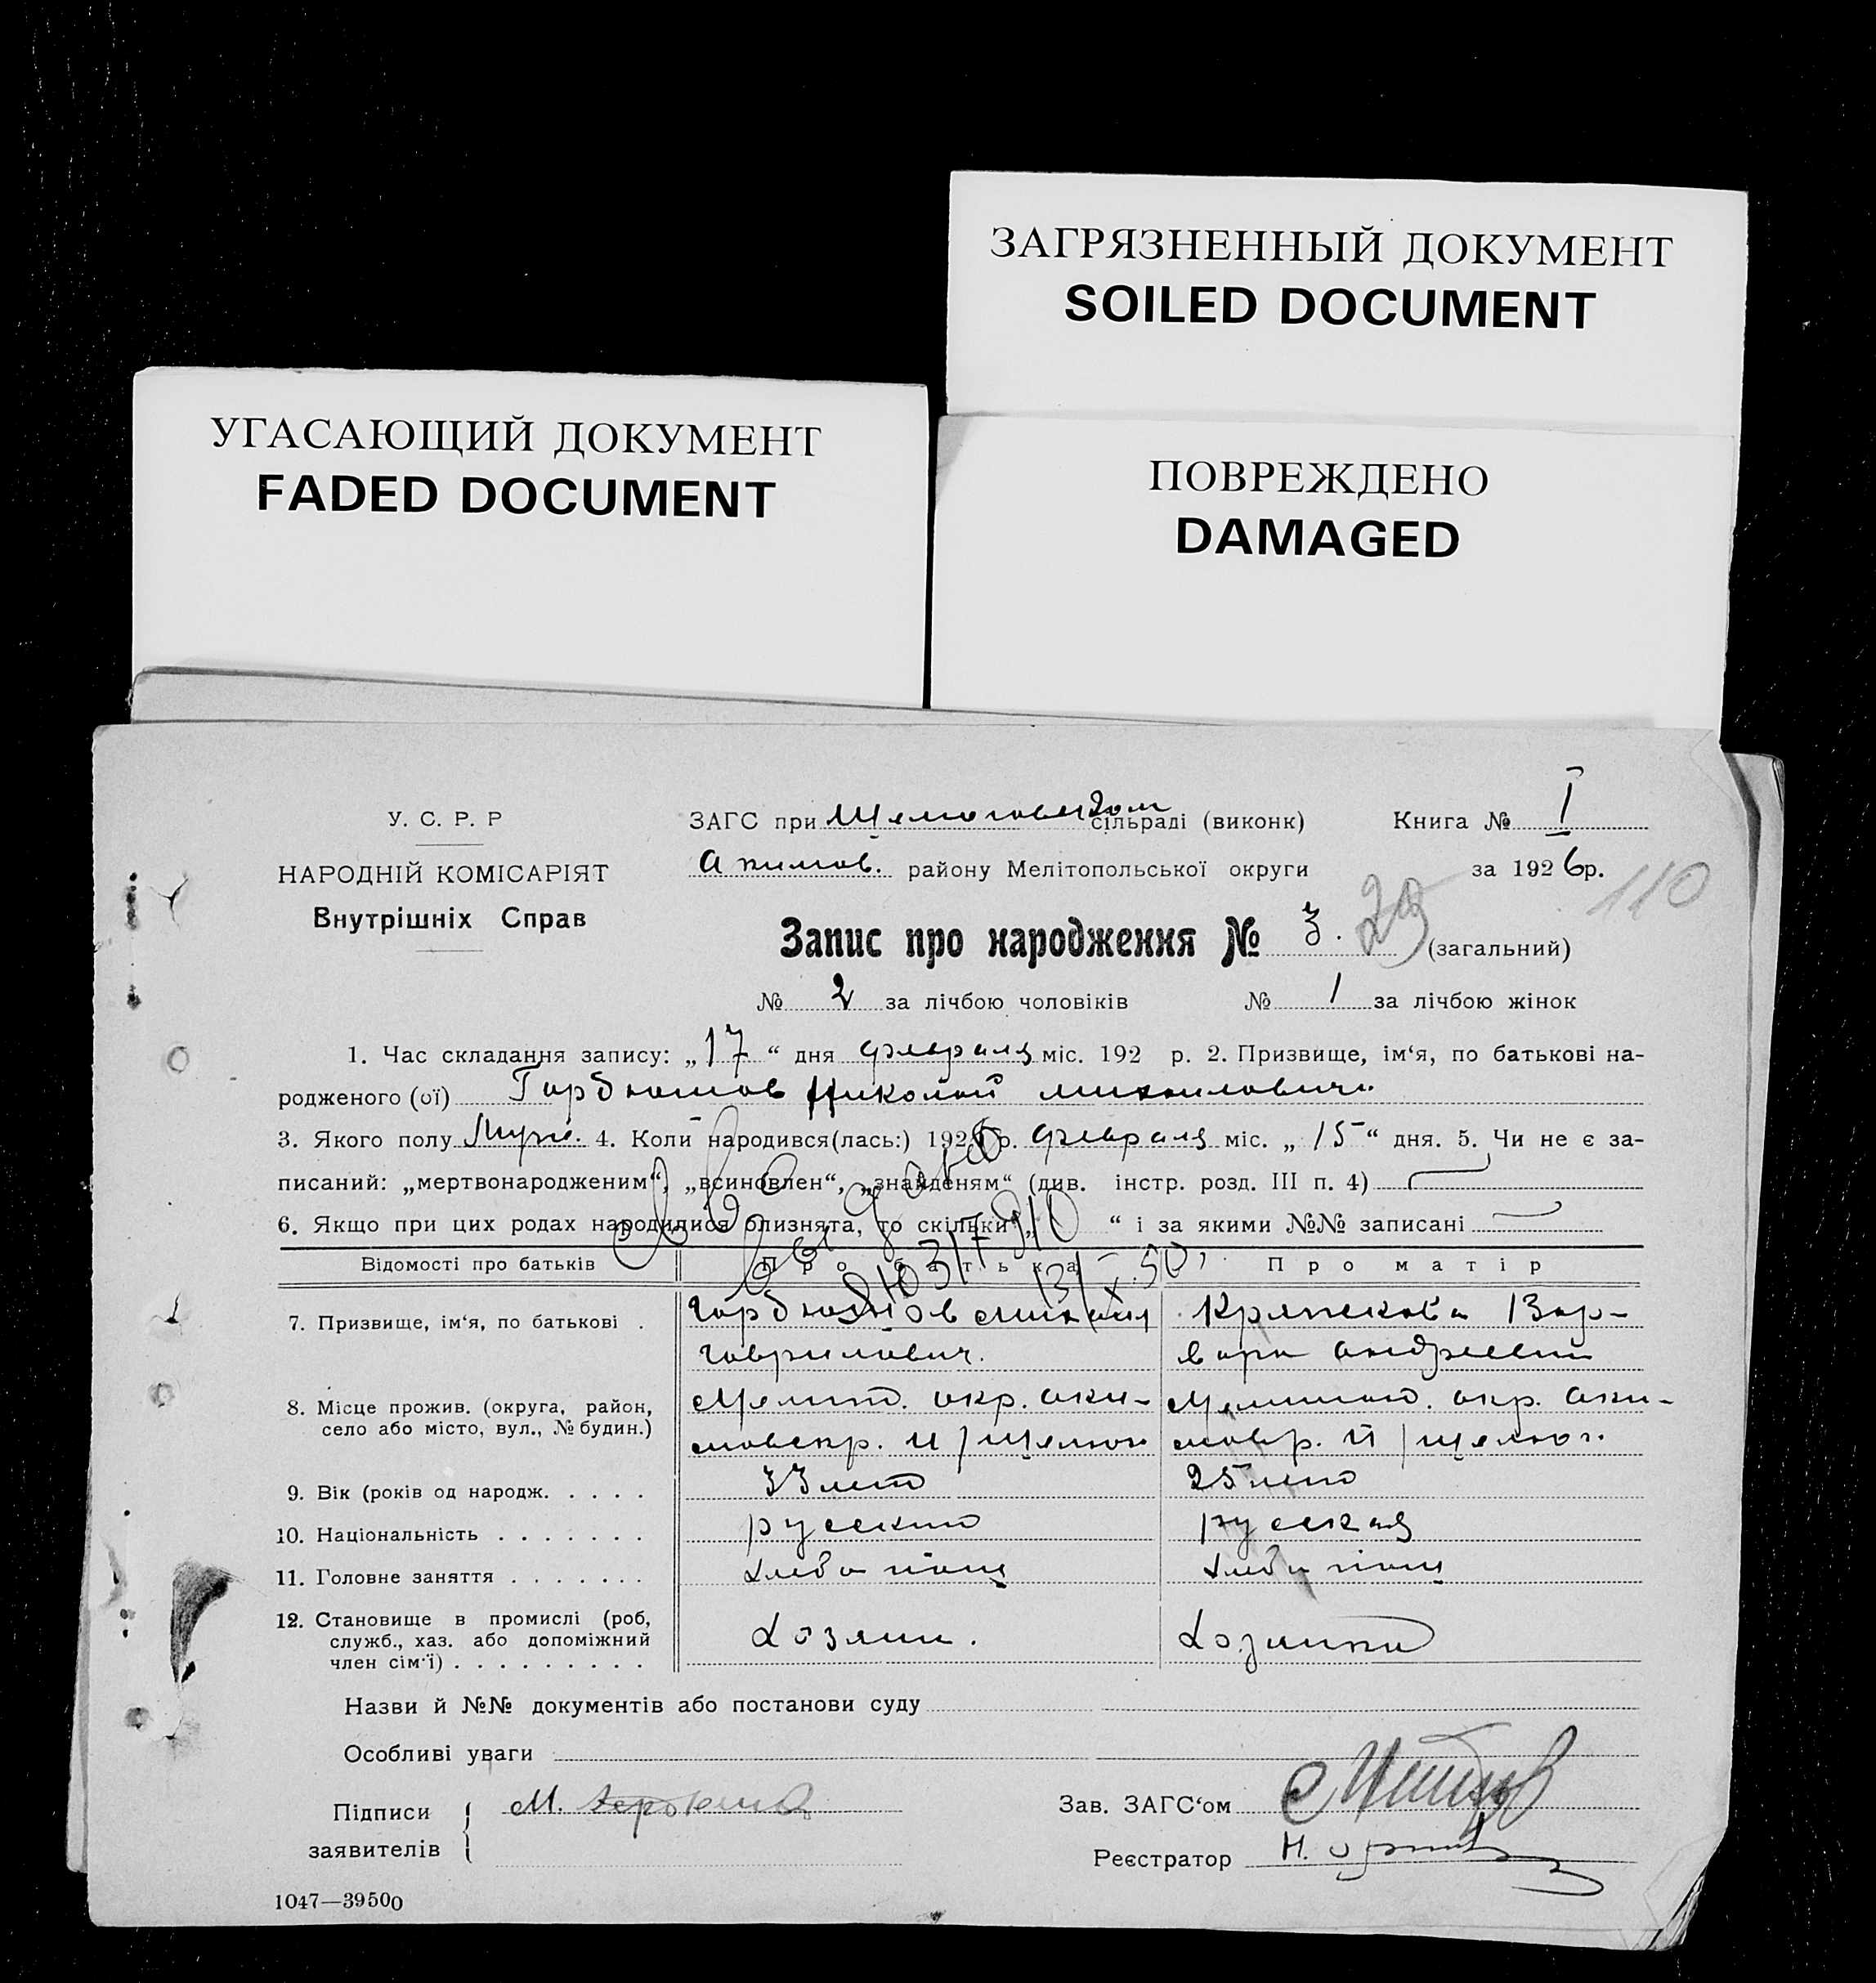 ЗАГРЯЗНЕННЫЙ ДОКУМЕНТ
SOILED DOCUMENT
УГАСАЮЩИЙ ДОКУМЕНТ
FADED DOCUMENT
ПОВРЕЖДЕНО
DAMAGED
У. С. Р. Р
НАРОДНІЙ КОМІСАРІЯТ
Внутрішніх Справ
ЗАГС при сільраді (виконк) Книга № I
Аким ов. району Мелітопольської округи за 1926р.
110
Запис про народження № 3. 29 (загальний)
№ 2 за лічбою чоловіків № 1 за лічбою жінок
1. Час складання запису: „17“ дня февраля міс. 192 р. 2. Призвище, ім‘я, по батькові на-
родженого (ої) Николай Михаилович
3. Якого полу Муж. 4. Коли народився(лась:) 1926р. февраля міс. „15“ дня. 5. Чи не є за-
писаний: „мертвонародженим“, „всиновлен“, „знайденям“ (див. інстр. розд. III п. 4)
6. Якщо при цих родах народилися близнята, то скільки „ “ і за якими №№ записані
Відомості про батьків Про батька Про матір
7. Призвище, ім‘я, по батькові . Михаил Вар-
Гаврилович. вара Андреевн
8. Місце прожив. (округа, район, село або місто, вул., № будин.) Мелит. окр. Аки- Мелитоп. окр. Аки-
9. Вік (років од народж. . . . . 33 лет 25 лет
10. Національність . . . . . . . русский русская
11. Головне заняття . . . . . . . хлебопащ хлебопащ
12. Становище в промислі (роб, служб., хаз. або допоміжний член сім‘ї) . . . . . . . . . хозяин. хозяйка
Назви й №№ документів або постанови суду
Особливі уваги
Підписи заявителів М.
Зав. ЗАГС‘ом
Реєстратор Н.
1047—39500